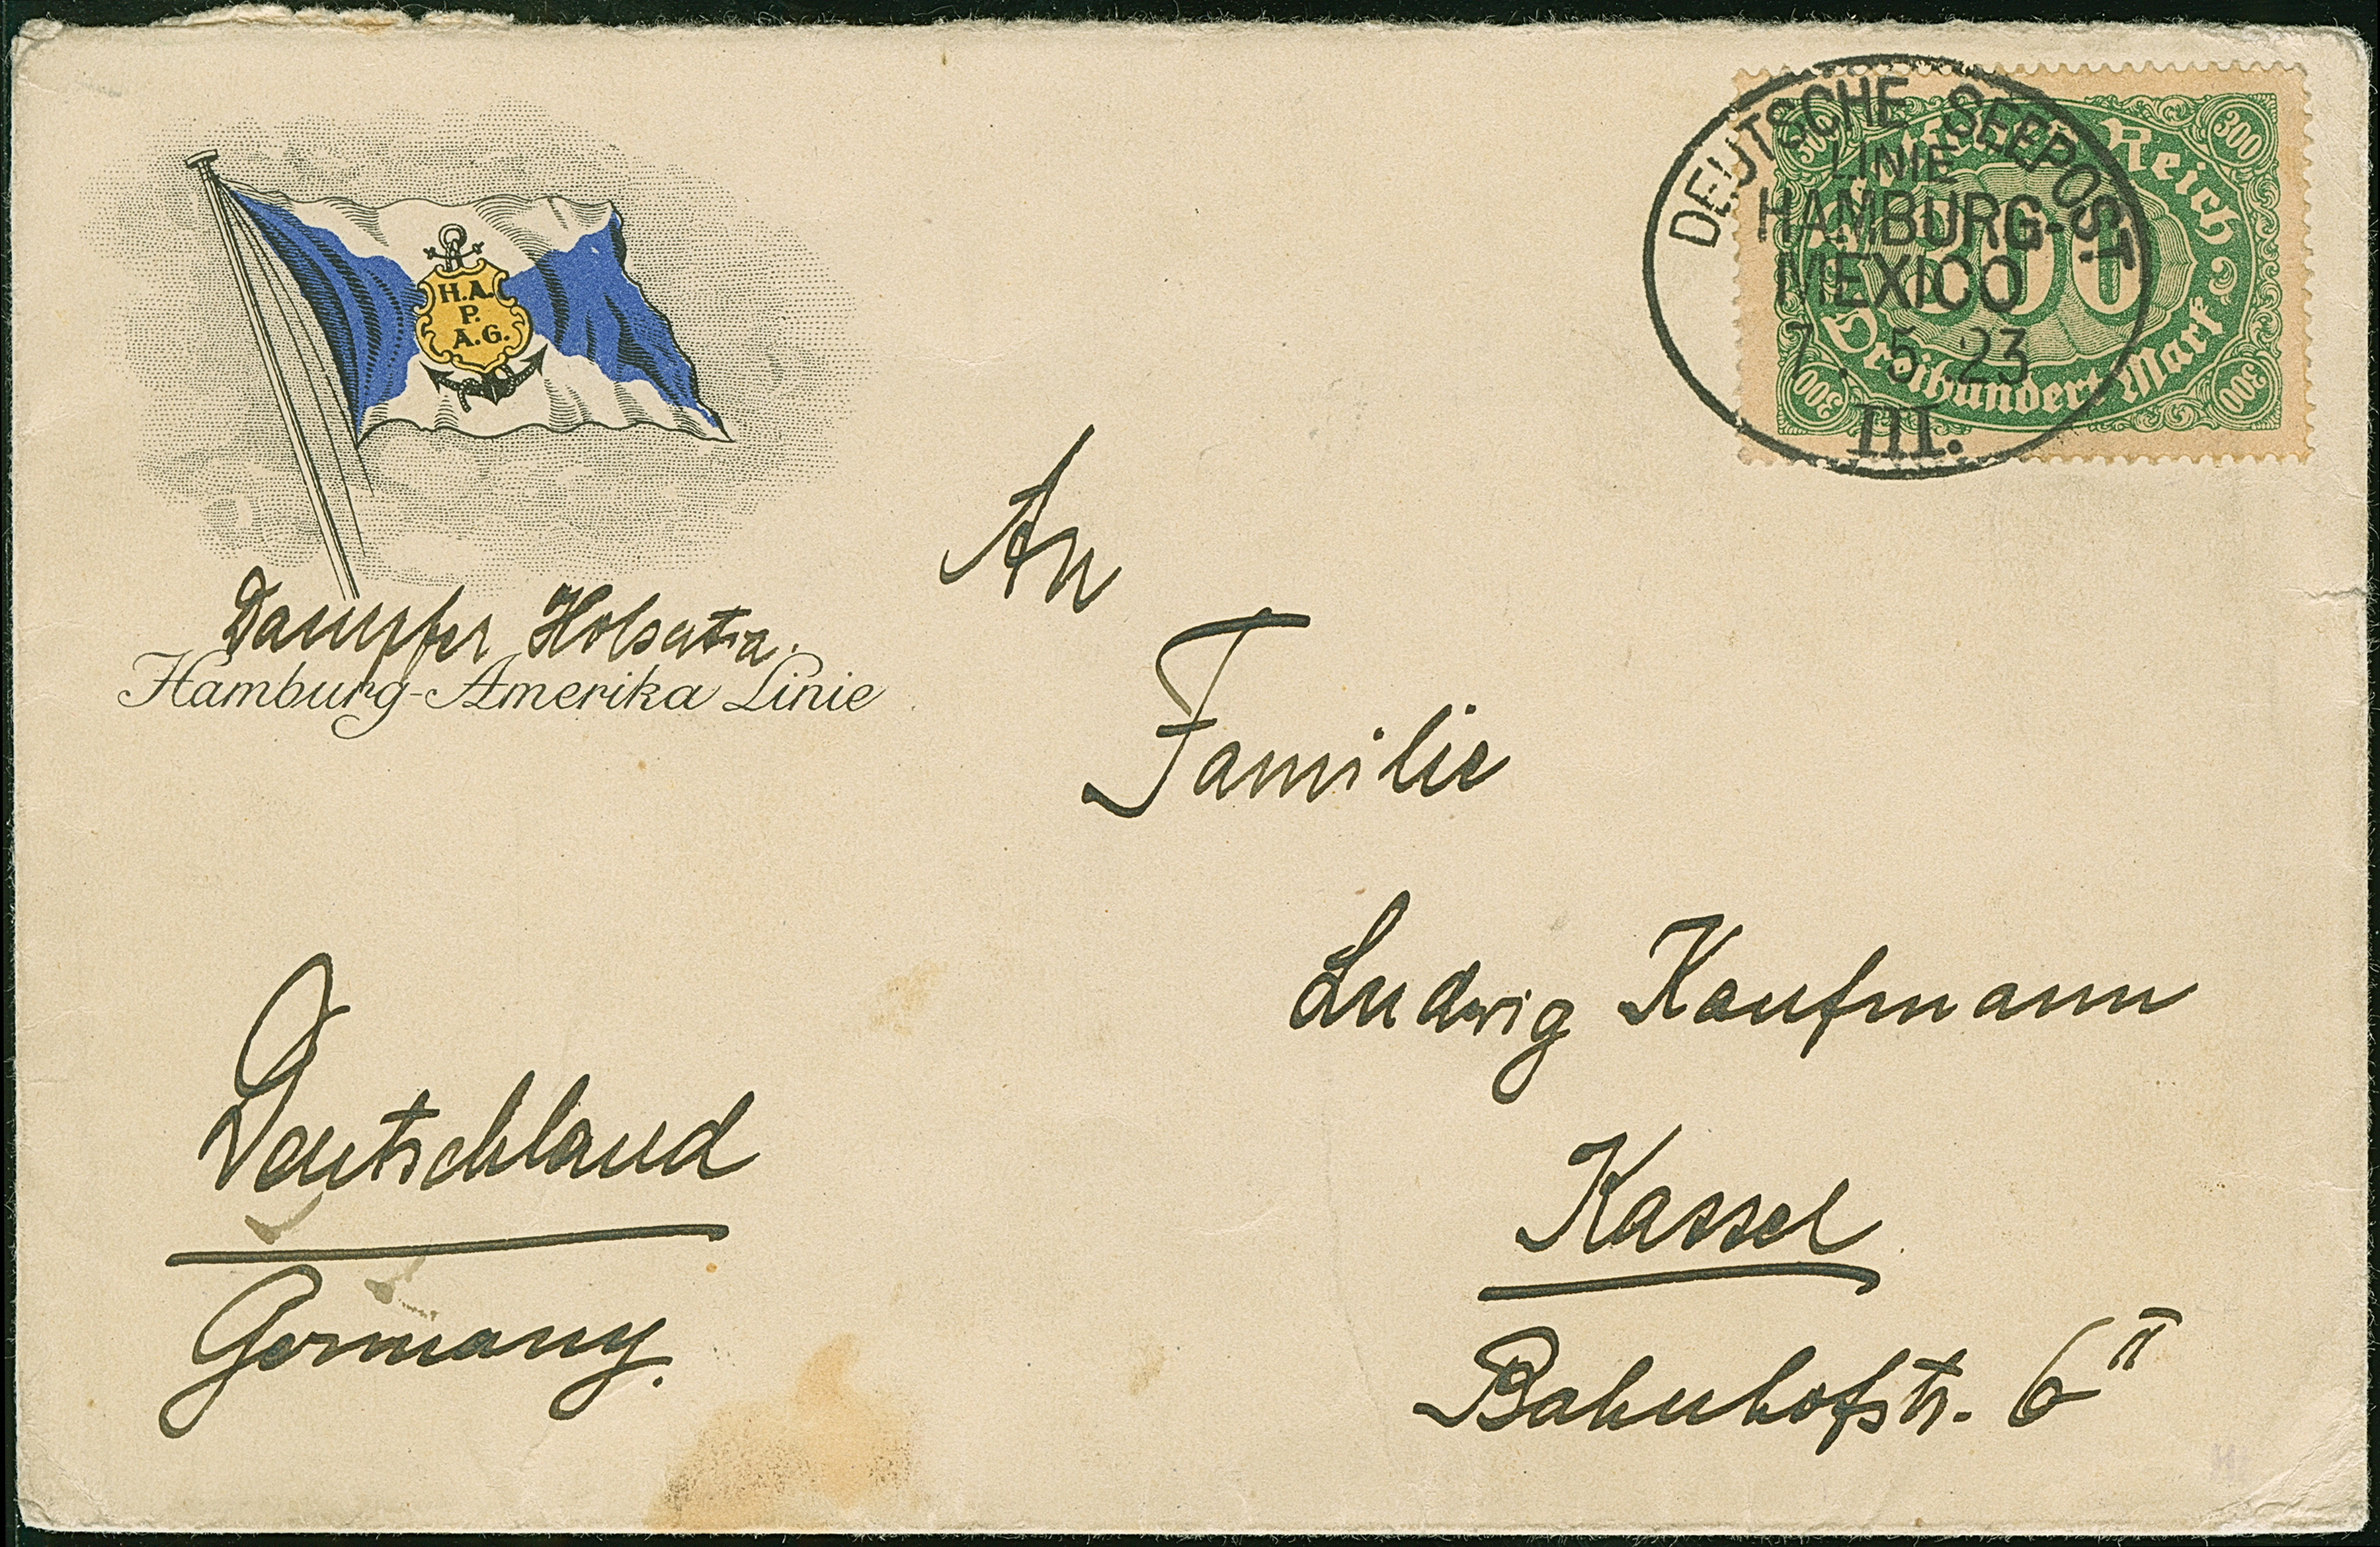 H.A.
P.
A.G.
Dampfer Holsatia.
Hamburg-Amerika Linie
DEUTSCHE SEEPOST
LINIE
HAMBURG-
MEXICO
7. 5. 23
III.
Reich
300
300
300
300
300
Dreihundert Mark
An
Familie
Ludwig Kaufmann
Kassel
Bahnhofstr. 6 II
Deutschland
Germany.